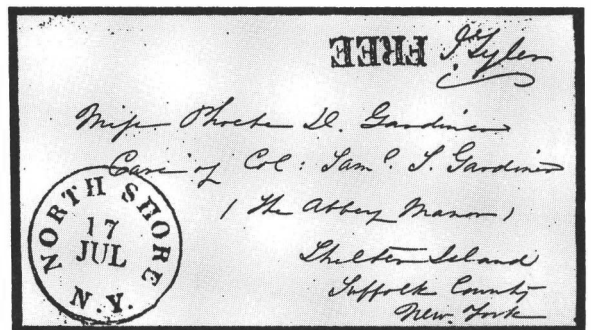 FREE J. Tyler
Miss Phoebe D. Gardiner
Care of Col: Sam.l S. Gardiner
(The Abbey Manor)
Shelter Island
Suffolk County
New. York
NORTH SHORE
17
JUL
N.Y.